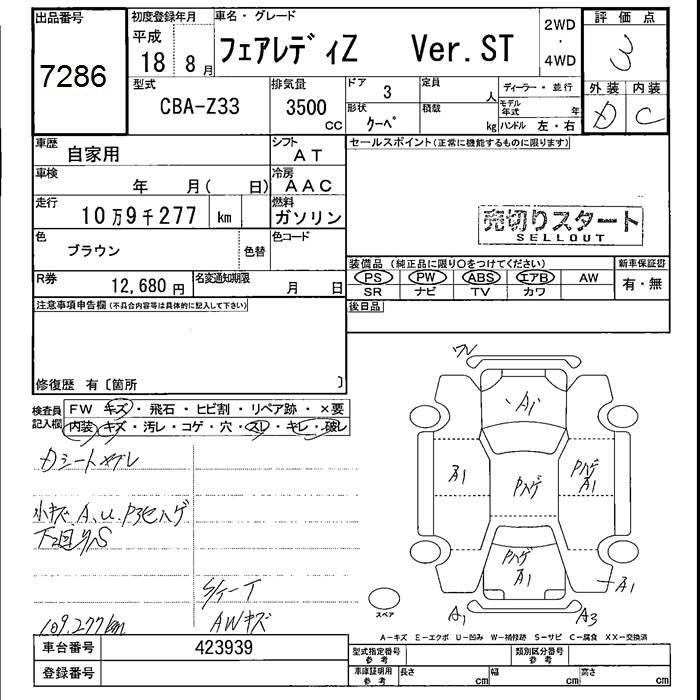 出品番号
7286
初度登録年月
平成
18 8月
車名・グレード
フェアレディZ Ver. ST
2WD
・
4WD
評価点
3
外装 内装
D C
型式
CBA-Z33
排気量
3500
CC
ドア 3
形状 クーペ
定員 人
積載 kg
ディーラー・並行
モデル年式 年
ハンドル 左・右
車歴 自家用
シフト AT
車検 年 月( 日)
冷房 AAC
走行 10万9千277 km
燃料 ガソリン
色 ブラウン 色替
色コード
R券 12,680円
名変通知期限 月 日
セールスポイント(正常に機能するものに限ります)
売切りスタート
SELLOUT
装備品 (純正品に限り○をつけてください)
PS PW ABS エアB AW
SR ナビ TV カワ
新車保証書
有・無
後日品
注意事項申告欄(不具合内容等は具体的に記入して下さい)
修復歴 有〔箇所 〕
検査員記入欄
FW キズ・飛石・ヒビ割・リペア跡・×要
内装 キズ・汚レ・コゲ・穴・スレ・キレ・破レ
小キズ A、U、
109.277km
AWキズ
A1
A1
Pハゲ
Pハゲ
A1
Pハゲ
A1
A1
A1
A3
スペア
A-キズ E-エクボ U-凹み W-補修跡 S-サビ C-腐食 XX-交換済
車台番号 423939
登録番号
型式指定番号 参考
類別区分番号 参考
車庫証明用 参考
長さ cm 幅 cm 高さ cm